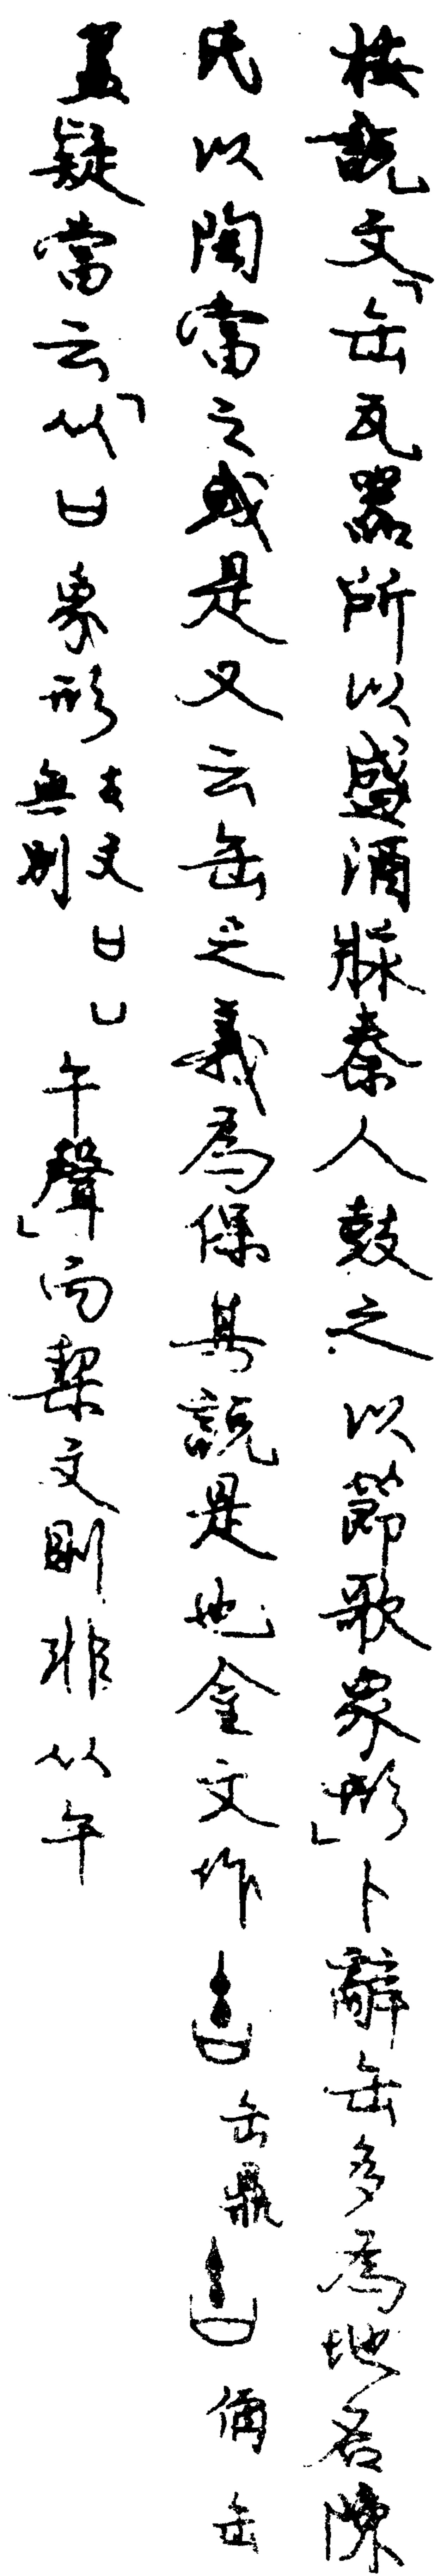 按說文「缶瓦器所以盛酒䊢秦人鼓之以節歌象形」卜辭缶多爲地名陳
氏以陶當之或是又云缶之義爲保其說是也金文作缶鼎𠈹缶
蓋疑當云「从凵象形古文凵凵無別午聲」而栔文則非从午